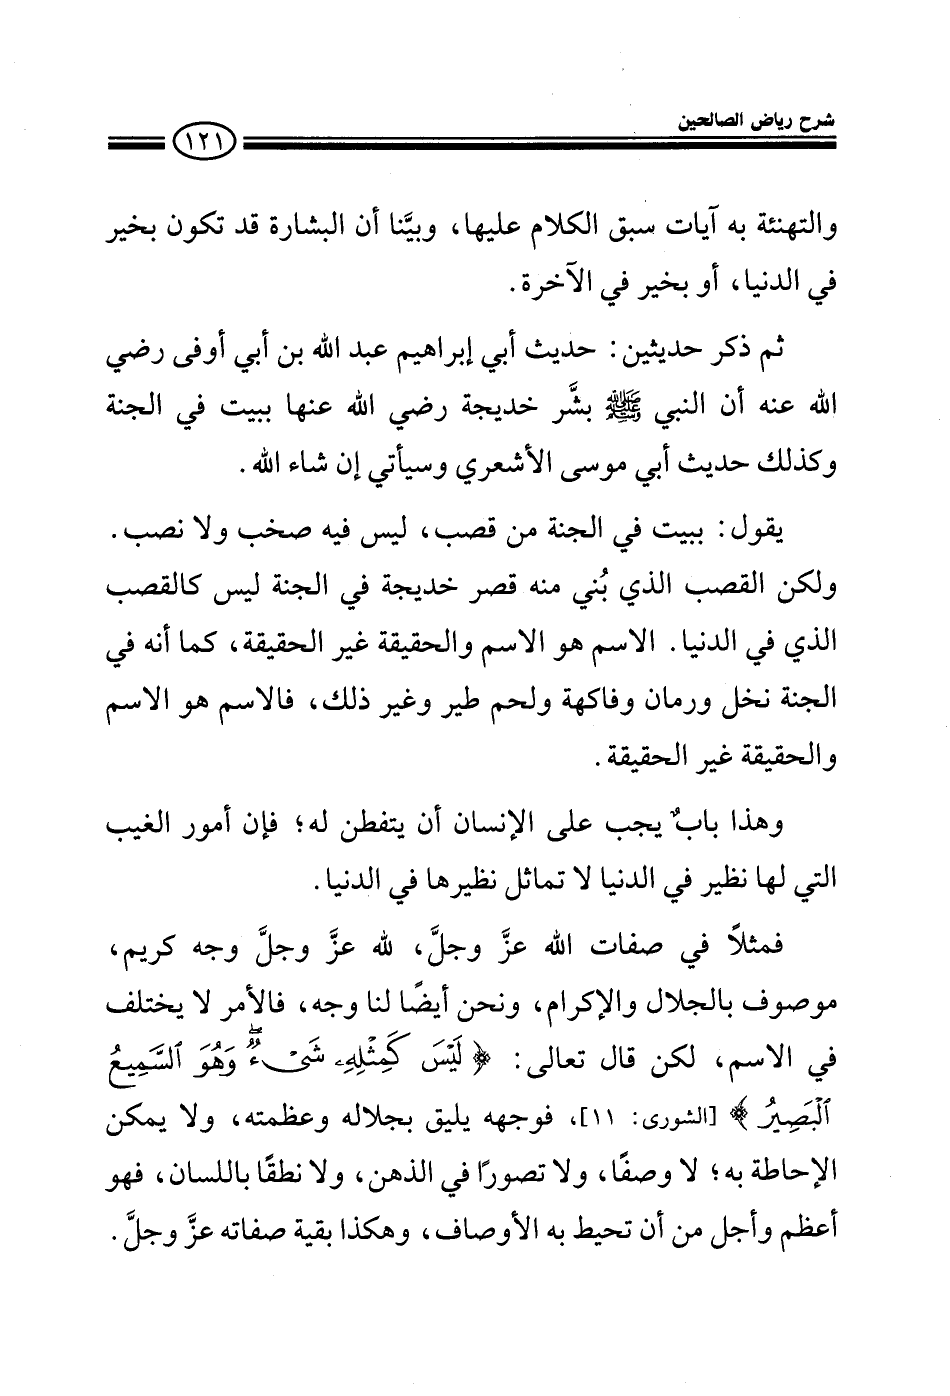 شرح رياض الصالحين
١٢١
والتهنئة به آيات سبق الكلام عليها، وبيَّنا أن البشارة قد تكون بخير
في الدنيا، أو بخير في الآخرة.
ثم ذكر حديثين: حديث أبي إبراهيم عبد الله بن أبي أوفى رضي
الله عنه أن النبي ﷺ بشَّر خديجة رضي الله عنها ببيت في الجنة
وكذلك حديث أبي موسى الأشعري وسيأتي إن شاء الله.
يقول: ببيت في الجنة من قصب، ليس فيه صخب ولا نصب.
ولكن القصب الذي بُني منه قصر خديجة في الجنة ليس كالقصب
الذي في الدنيا. الاسم هو الاسم والحقيقة غير الحقيقة، كما أنه في
الجنة نخل ورمان وفاكهة ولحم طير وغير ذلك، فالاسم هو الاسم
والحقيقة غير الحقيقة.
وهذا بابٌ يجب على الإنسان أن يتفطن له؛ فإن أمور الغيب
التي لها نظير في الدنيا لا تماثل نظيرها في الدنيا.
فمثلاً في صفات الله عزَّ وجلَّ، لله عزَّ وجلَّ وجه كريم،
موصوف بالجلال والإكرام، ونحن أيضًا لنا وجه، فالأمر لا يختلف
في الاسم، لكن قال تعالى: ﴿ لَيْسَ كَمِثْلِهِۦ شَىْءٌ ۖ وَهُوَ ٱلسَّمِيعُ
ٱلْبَصِيرُ ﴾ [الشورى: ١١]، فوجهه يليق بجلاله وعظمته، ولا يمكن
الإحاطة به؛ لا وصفًا، ولا تصورًا في الذهن، ولا نطقًا باللسان، فهو
أعظم وأجل من أن تحيط به الأوصاف، وهكذا بقية صفاته عزَّ وجلَّ.